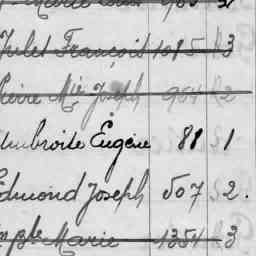 Jules François 1085 3
Pierre Mie Joseph 964 2
Ambroise Eugène 88 1
Edmond Joseph 507 2.
Bte Marie 1354 3